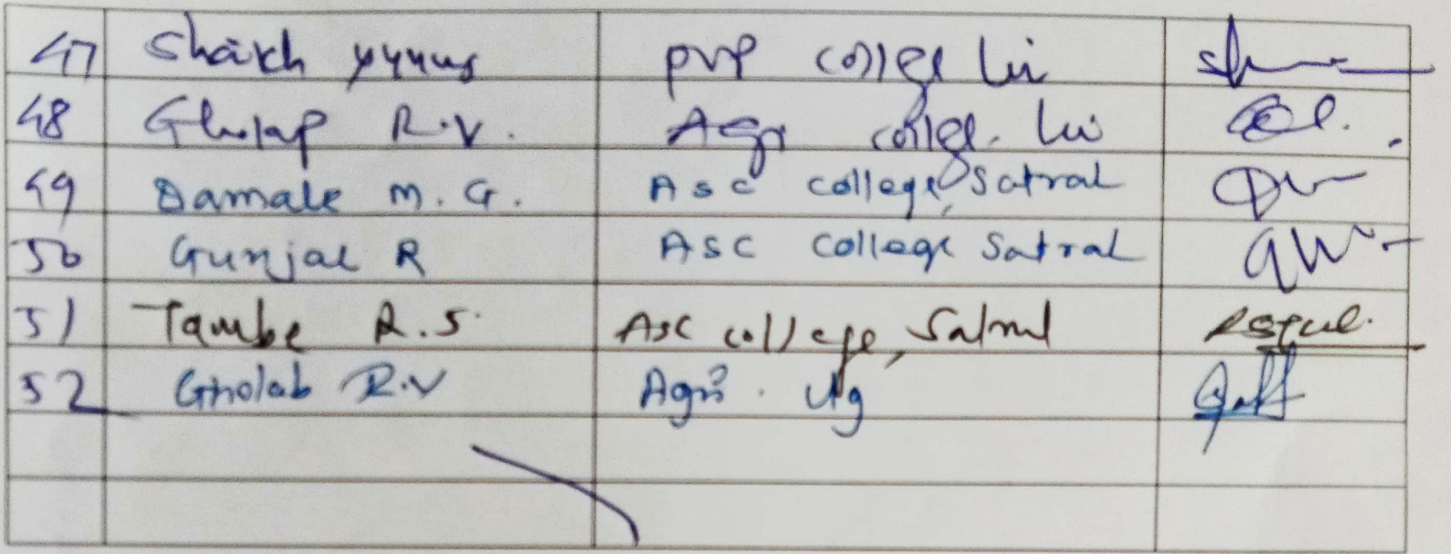 47 Shaikh yynus pvp college Lii
48 Gholap R.V. Agri college. Lii
49 Damale M.G. Asc college, Satral
50 Gunjal R ASC College Satral
51 Tambe R.S. Asc college, Satral
52 Gholab R.V Agri.